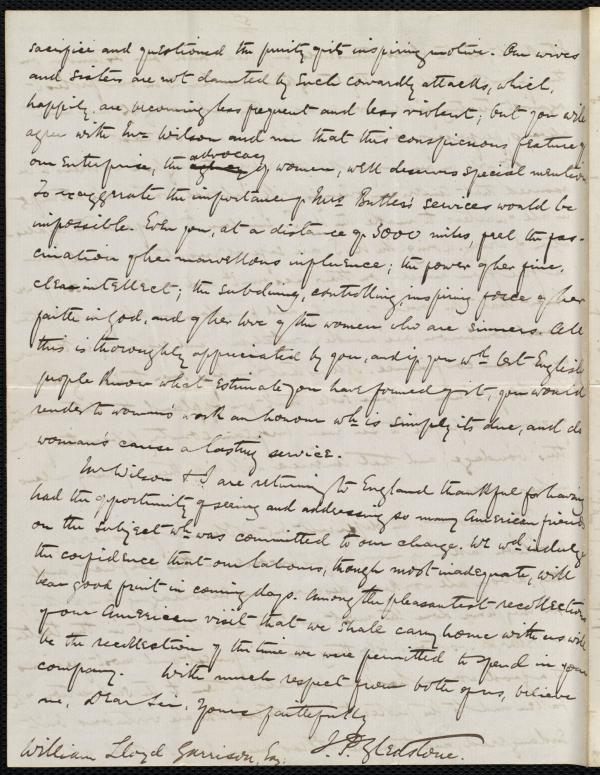 sacrifice and questioned the purity of its inspiring motive. Our wives
and sisters are not daunted by such cowardly attacks, which,
happily, are becoming less frequent and less violent; but you will
agree with Mr. Wilson and me that this conspicuous feature of
our enterprise, the advocacy of women, well deserves special mention.
To exaggerate the importance of Mrs. Butler's services would be
impossible. Even you, at a distance of 3000 miles, feel the fas-
cination of her marvellous influence; the power of her fine,
clear intellect; the subduing, controlling, inspiring force of her
faith in God, and of her love of the women who are sinners. All
this is thoroughly appreciated by you, and if you wd. let English
people know what estimate you have formed of it, you would
render to women's work an honour wh. is simply its due, and do
woman's cause a lasting service.
Mr Wilson & I are returning to England thankful for having
had the opportunity of seeing and addressing so many American friends
on the subject wh. was committed to our charge. We wd. indulge
the confidence that our labours, though most inadequate, will
bear good fruit in coming days. Among the pleasantest recollections
of our American visit that we shall carry home with us will
be the recollection of the time we were permitted to spend in your
company. With much respect from both of us, believe
me, Dear Sir, Yours faithfully
J. P. Gledstone.
William Lloyd Garrison, Esq.